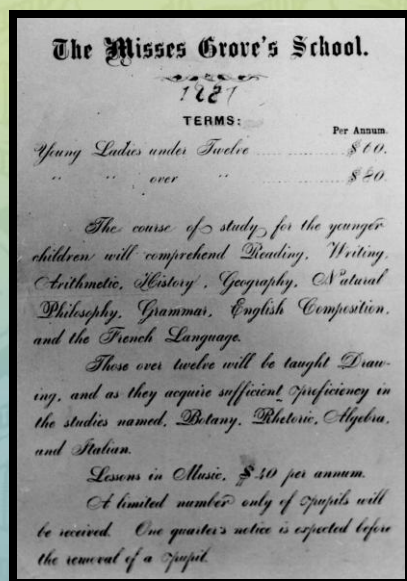 The Misses Grove's School.
TERMS:
Per Annum.
Young Ladies under Twelve ........ $60.
" " over " ........ $80.
The course of study for the younger
children will comprehend Reading, Writing,
Arithmetic, History, Geography, Natural
Philosophy, Grammar, English Composition,
and the French Language.
Those over twelve will be taught Draw-
ing, and as they acquire sufficient proficiency in
the studies named, Botany, Rhetoric, Algebra,
and Italian.
Lessons in Music, $40 per annum.
A limited number only of pupils will
be received. One quarter's notice is expected before
the removal of a pupil.